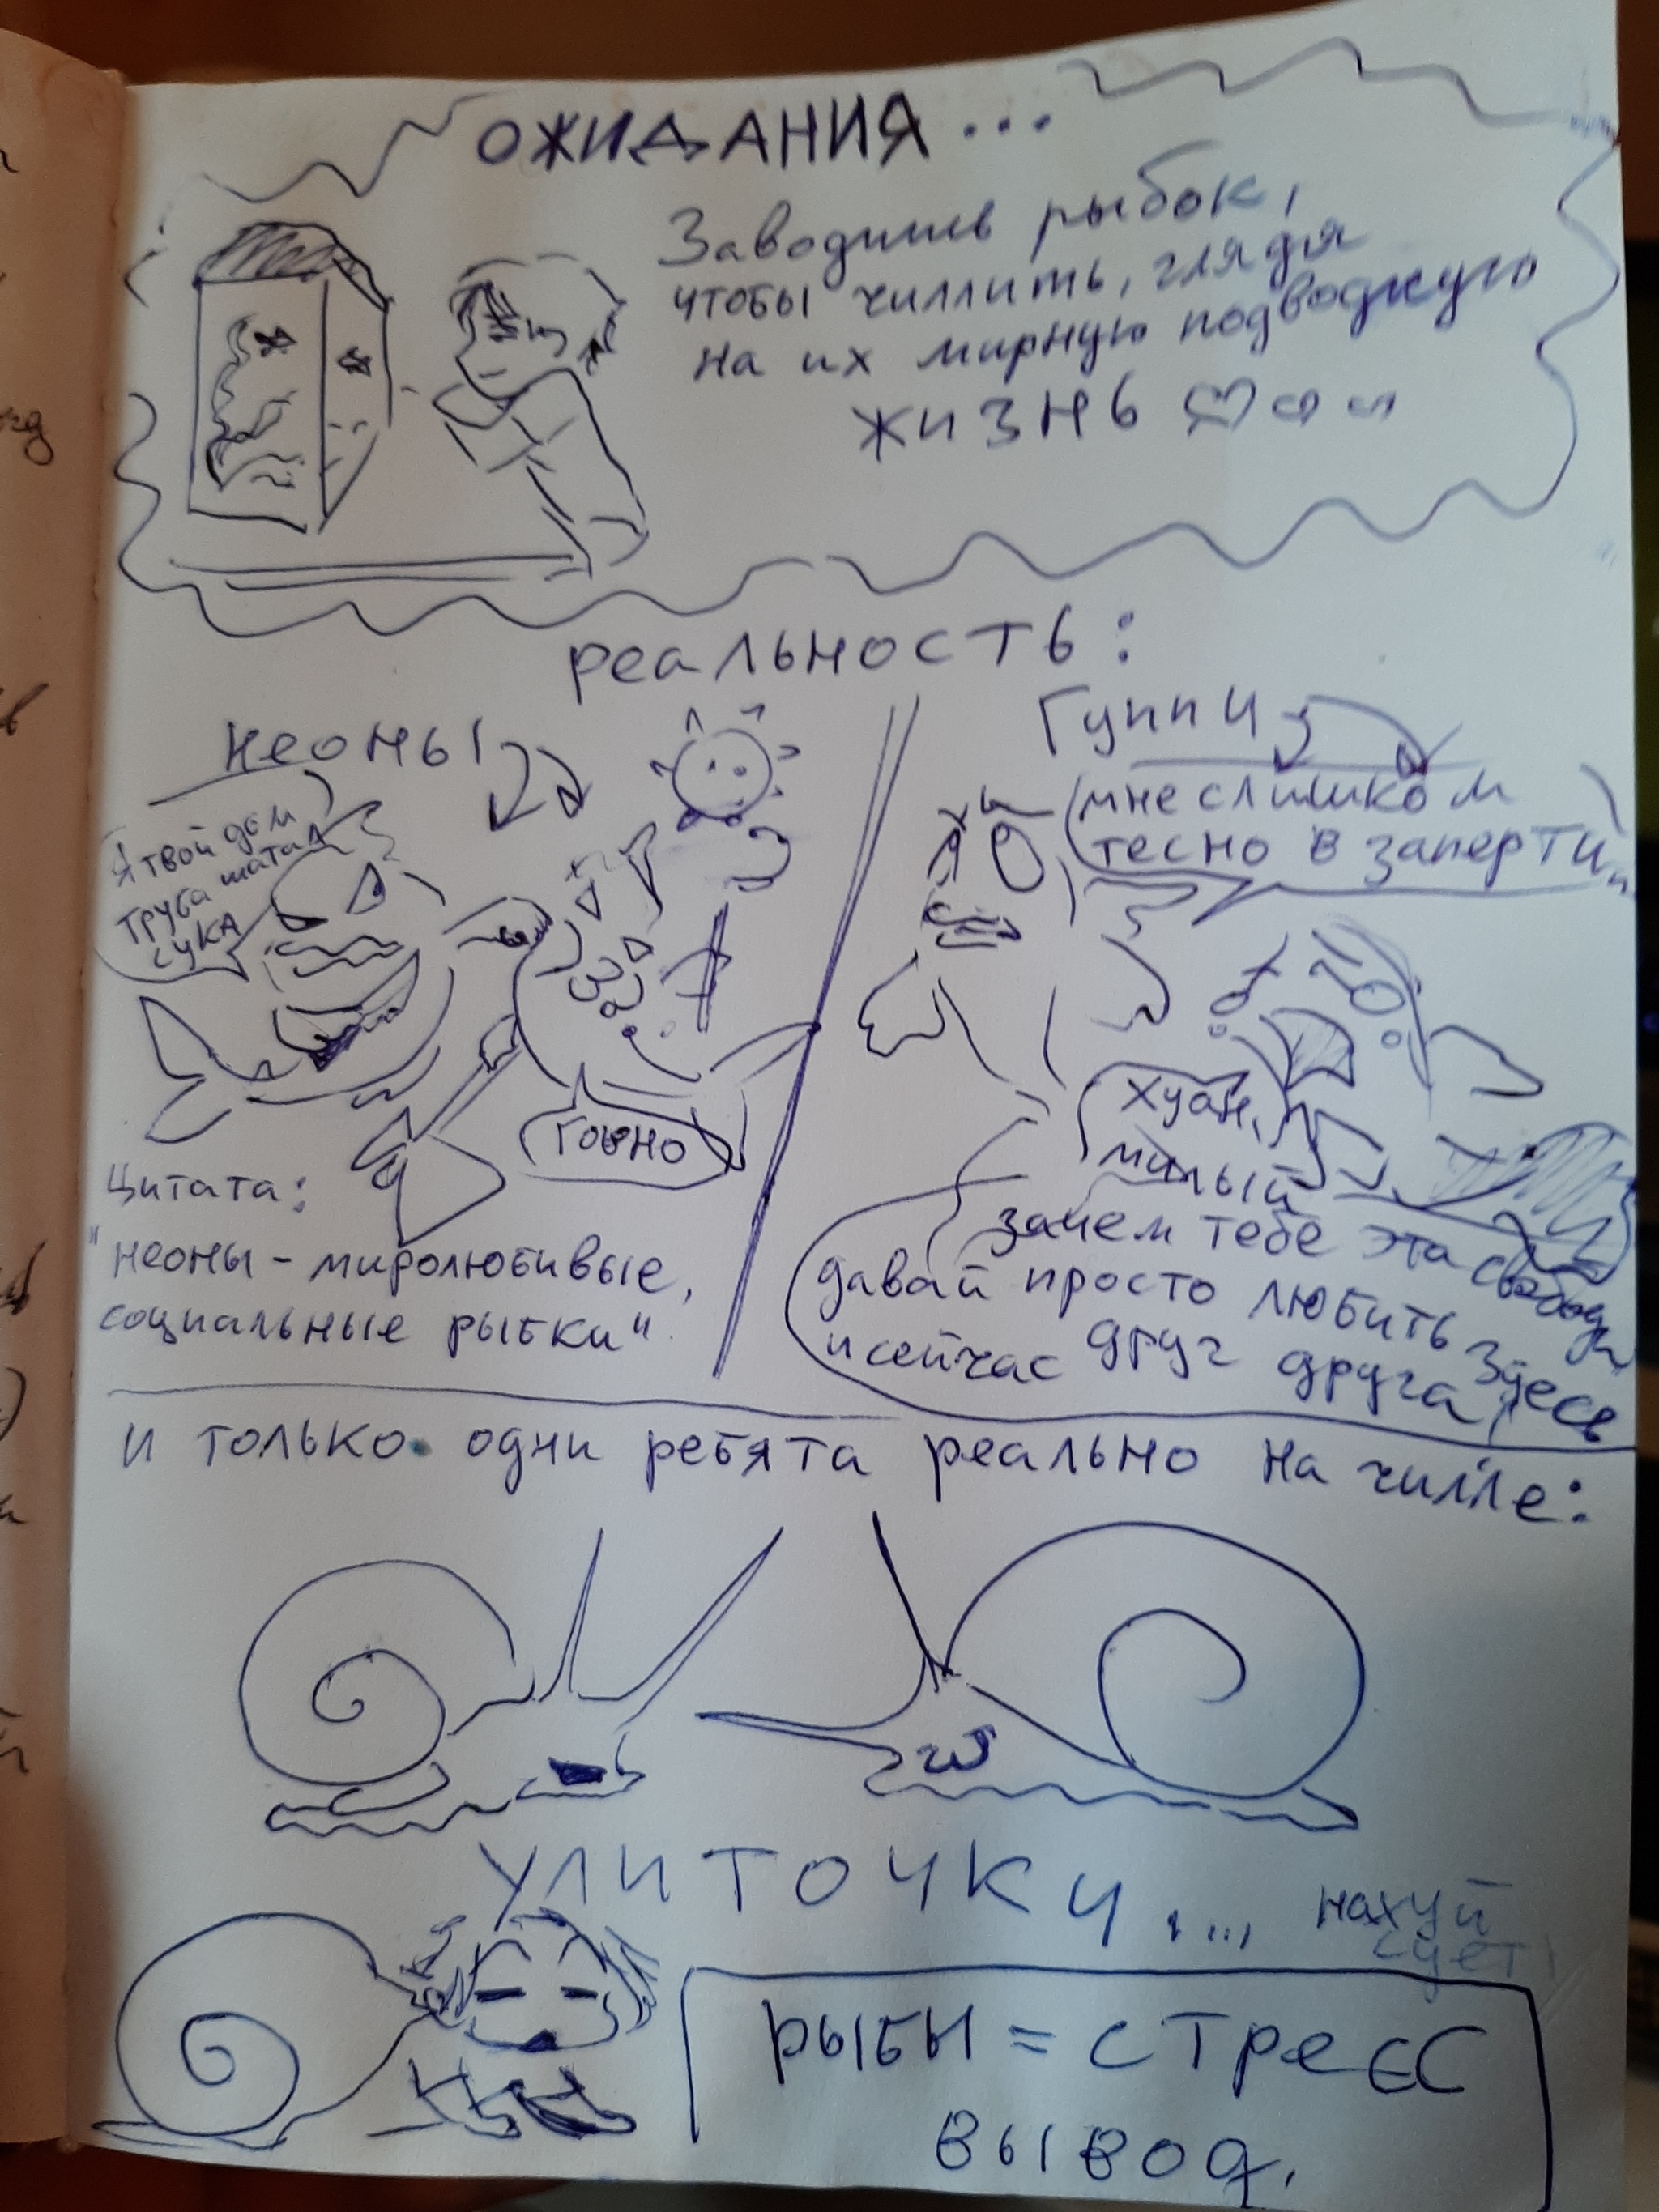 ОЖИДАНИЯ...
Заводишь рыбок,
чтобы чиллить, глядя
на их мирную подводную
ЖИЗНЬ
реальность:
неоны
Я твой дом
труба шатал
сука
говно
Цитата:
"неоны - миролюбивые,
социальные рыбки".
Гуппи
мне слишком
тесно в заперти..
Хуан,
милый
зачем тебе эта свобода
давай просто любить здесь
и сейчас друг друга
и только одни ребята реально на чилле:
УЛИТОЧКИ.... нахуй
сует
рыбы = стресс
вывод.